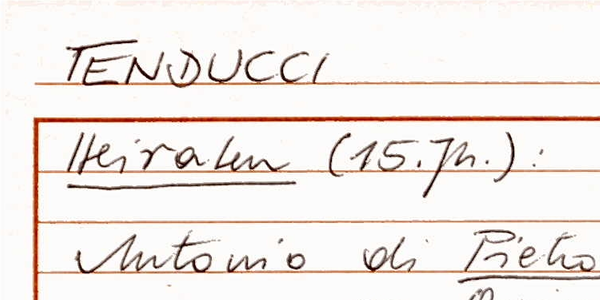 TENDUCCI
Heiraten (15. Jh.):
Antonio di Pietro